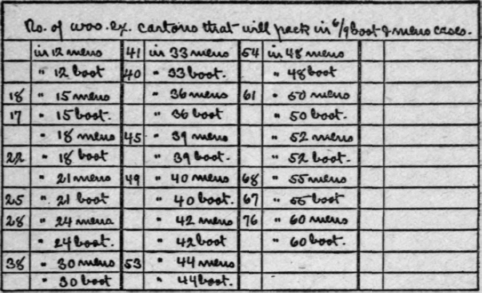 No. of woo. ex. cartons that will pack in 6/9 boot & mens cases.
in 12 mens 41 in 33 mens 54 in 48 mens
" 12 boot 40 " 33 boot. " 48 boot
18 " 15 mens " 36 mens 61 " 50 mens
17 " 15 boot. " 36 boot " 50 boot.
" 18 mens 45 " 39 mens " 52 mens
22 " 18 boot " 39 boot. " 52 boot.
" 21 mens 49 " 40 mens 68 " 55 mens
25 " 21 boot " 40 boot. 67 " 55 boot
28 " 24 mens " 42 mens 76 " 60 mens
" 24 boot. " 42 boot " 60 boot.
38 " 30 mens 53 " 44 mens
" 30 boot " 44 boot.